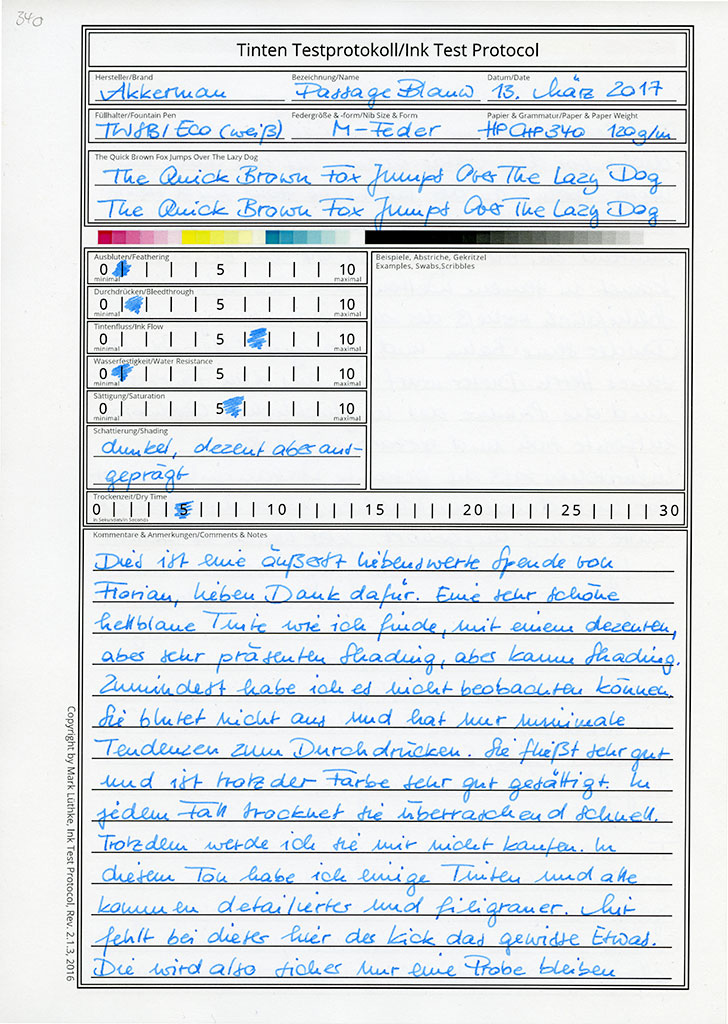 340
Tinten Testprotokoll/Ink Test Protocol
Hersteller/Brand Bezeichnung/Name Datum/Date
Akkerman Passage Blauw 13. März 2017
Füllhalter/Fountain Pen Federgröße & -form/Nib Size & Form Papier & Grammatur/Paper & Paper Weight
TWSBI Eco (weiß) M-Feder HP CHP 340 120g/m
The Quick Brown Fox Jumps Over The Lazy Dog
The Quick Brown Fox Jumps Over The Lazy Dog
The Quick Brown Fox Jumps Over The Lazy Dog
Ausbluten/Feathering
0 5 10
minimal maximal
Durchdrücken/Bleedthrough
0 5 10
minimal maximal
Tintenfluss/Ink Flow
0 5 10
minimal maximal
Wasserfestigkeit/Water Resistance
0 5 10
minimal maximal
Sättigung/Saturation
0 5 10
minimal maximal
Schattierung/Shading
dunkel, dezent aber aus-
geprägt
Beispiele, Abstriche, Gekritzel
Examples, Swabs,Scribbles
Trockenzeit/Dry Time
0 5 10 15 20 25 30
in Sekunden/in Seconds
Kommentare & Anmerkungen/Comments & Notes
Dies ist eine äußerst liebenswerte Spende von
Florian, lieben Dank dafür. Eine sehr schöne
hellblaue Tinte wie ich finde, mit einem dezenten,
aber sehr präsenten Shading, aber kaum Shading.
Zumindest habe ich es nicht beobachten können.
Sie blutet nicht aus und hat nur minimale
Tendenzen zum Durchdrücken. Sie fließt sehr gut
und ist trotz der Farbe sehr gut gesättigt. In
jedem Fall trocknet sie überraschend schnell.
Trotzdem werde ich sie mir nicht kaufen. In
diesem Ton habe ich einige Tinten und alle
kommen detailierter und filigraner. Mir
fehlt bei dieser hier der Kick das gewisse Etwas.
Die wird also sicher nur eine Probe bleiben
Copyright by Mark Lüthke, Ink Test Protocol, Rev. 2.1.3, 2016